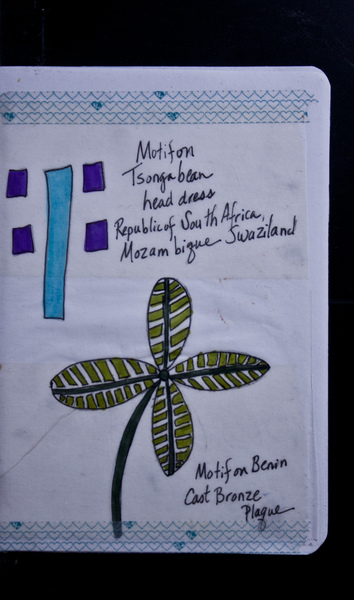 Motif on
Tsonga bean
head dress
Republic of South Africa,
Mozambique Swaziland
Motif on Benin
Cast Bronze
Plaque